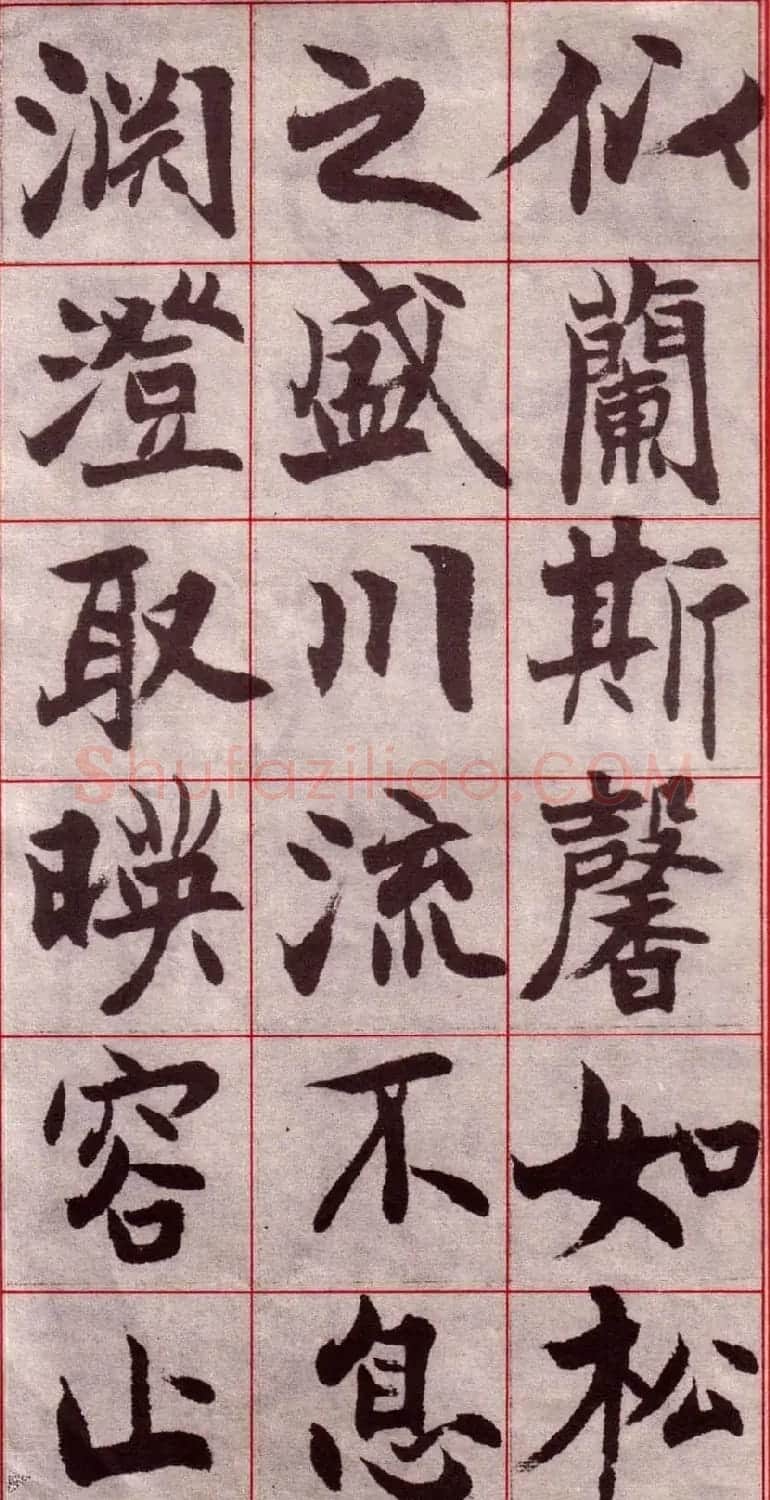 似蘭斯馨如松
之盛川流不息
渊澄取暎容止
Shufaziliao.COM